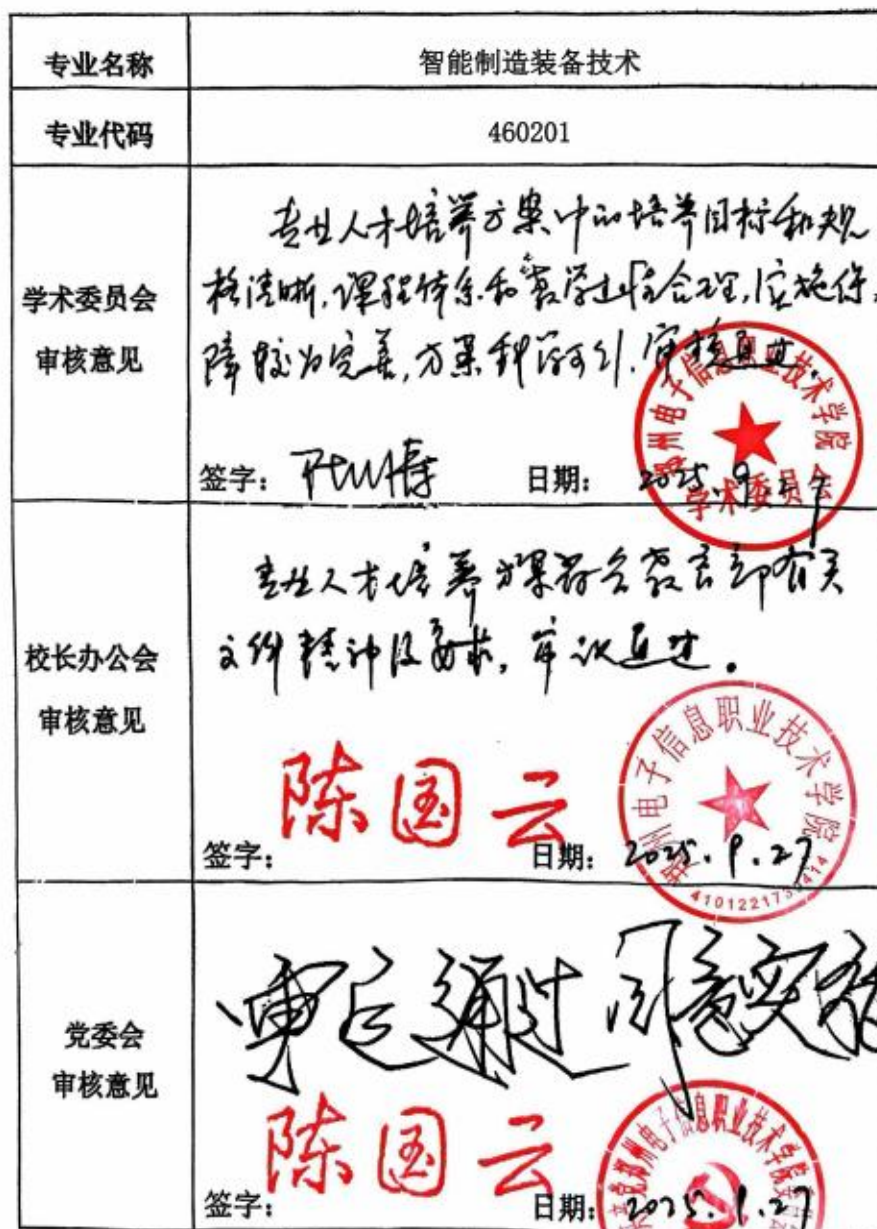 专业名称
智能制造装备技术
专业代码
460201
学术委员会
审核意见
专业人才培养方案中的培养目标和规
格清晰,课程体系和教学进程合理,实施保
障较为完善,方案科学可行,审核通过。
签字:
日期: 2025.9.27
郑州电子信息职业技术学院
学术委员会
校长办公会
审核意见
专业人才培养方案符合教育部有关
文件精神及要求,审议通过。
签字: 陈国云
日期: 2025.9.27
郑州电子信息职业技术学院
党委会
审核意见
审定通过 同意实施
签字: 陈国云
日期: 2025.9.27
郑州电子信息职业技术学院